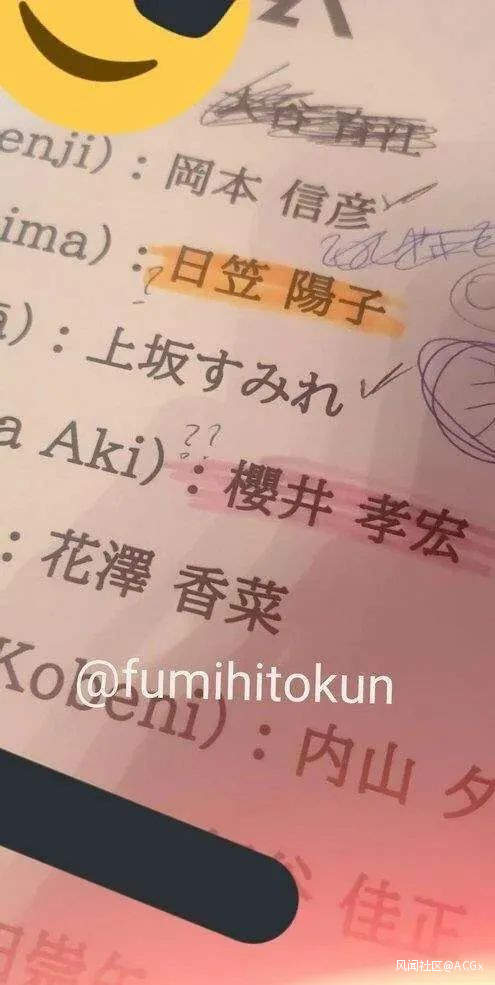 enji)：岡本 信彦
ima)：日笠 陽子
?
)：上坂すみれ
??
a Aki)：櫻井 孝宏
：花澤 香菜
@fumihitokun
Kobeni)：内山 夕
谷 佳正
田崇矢
风闻社区@ACGx